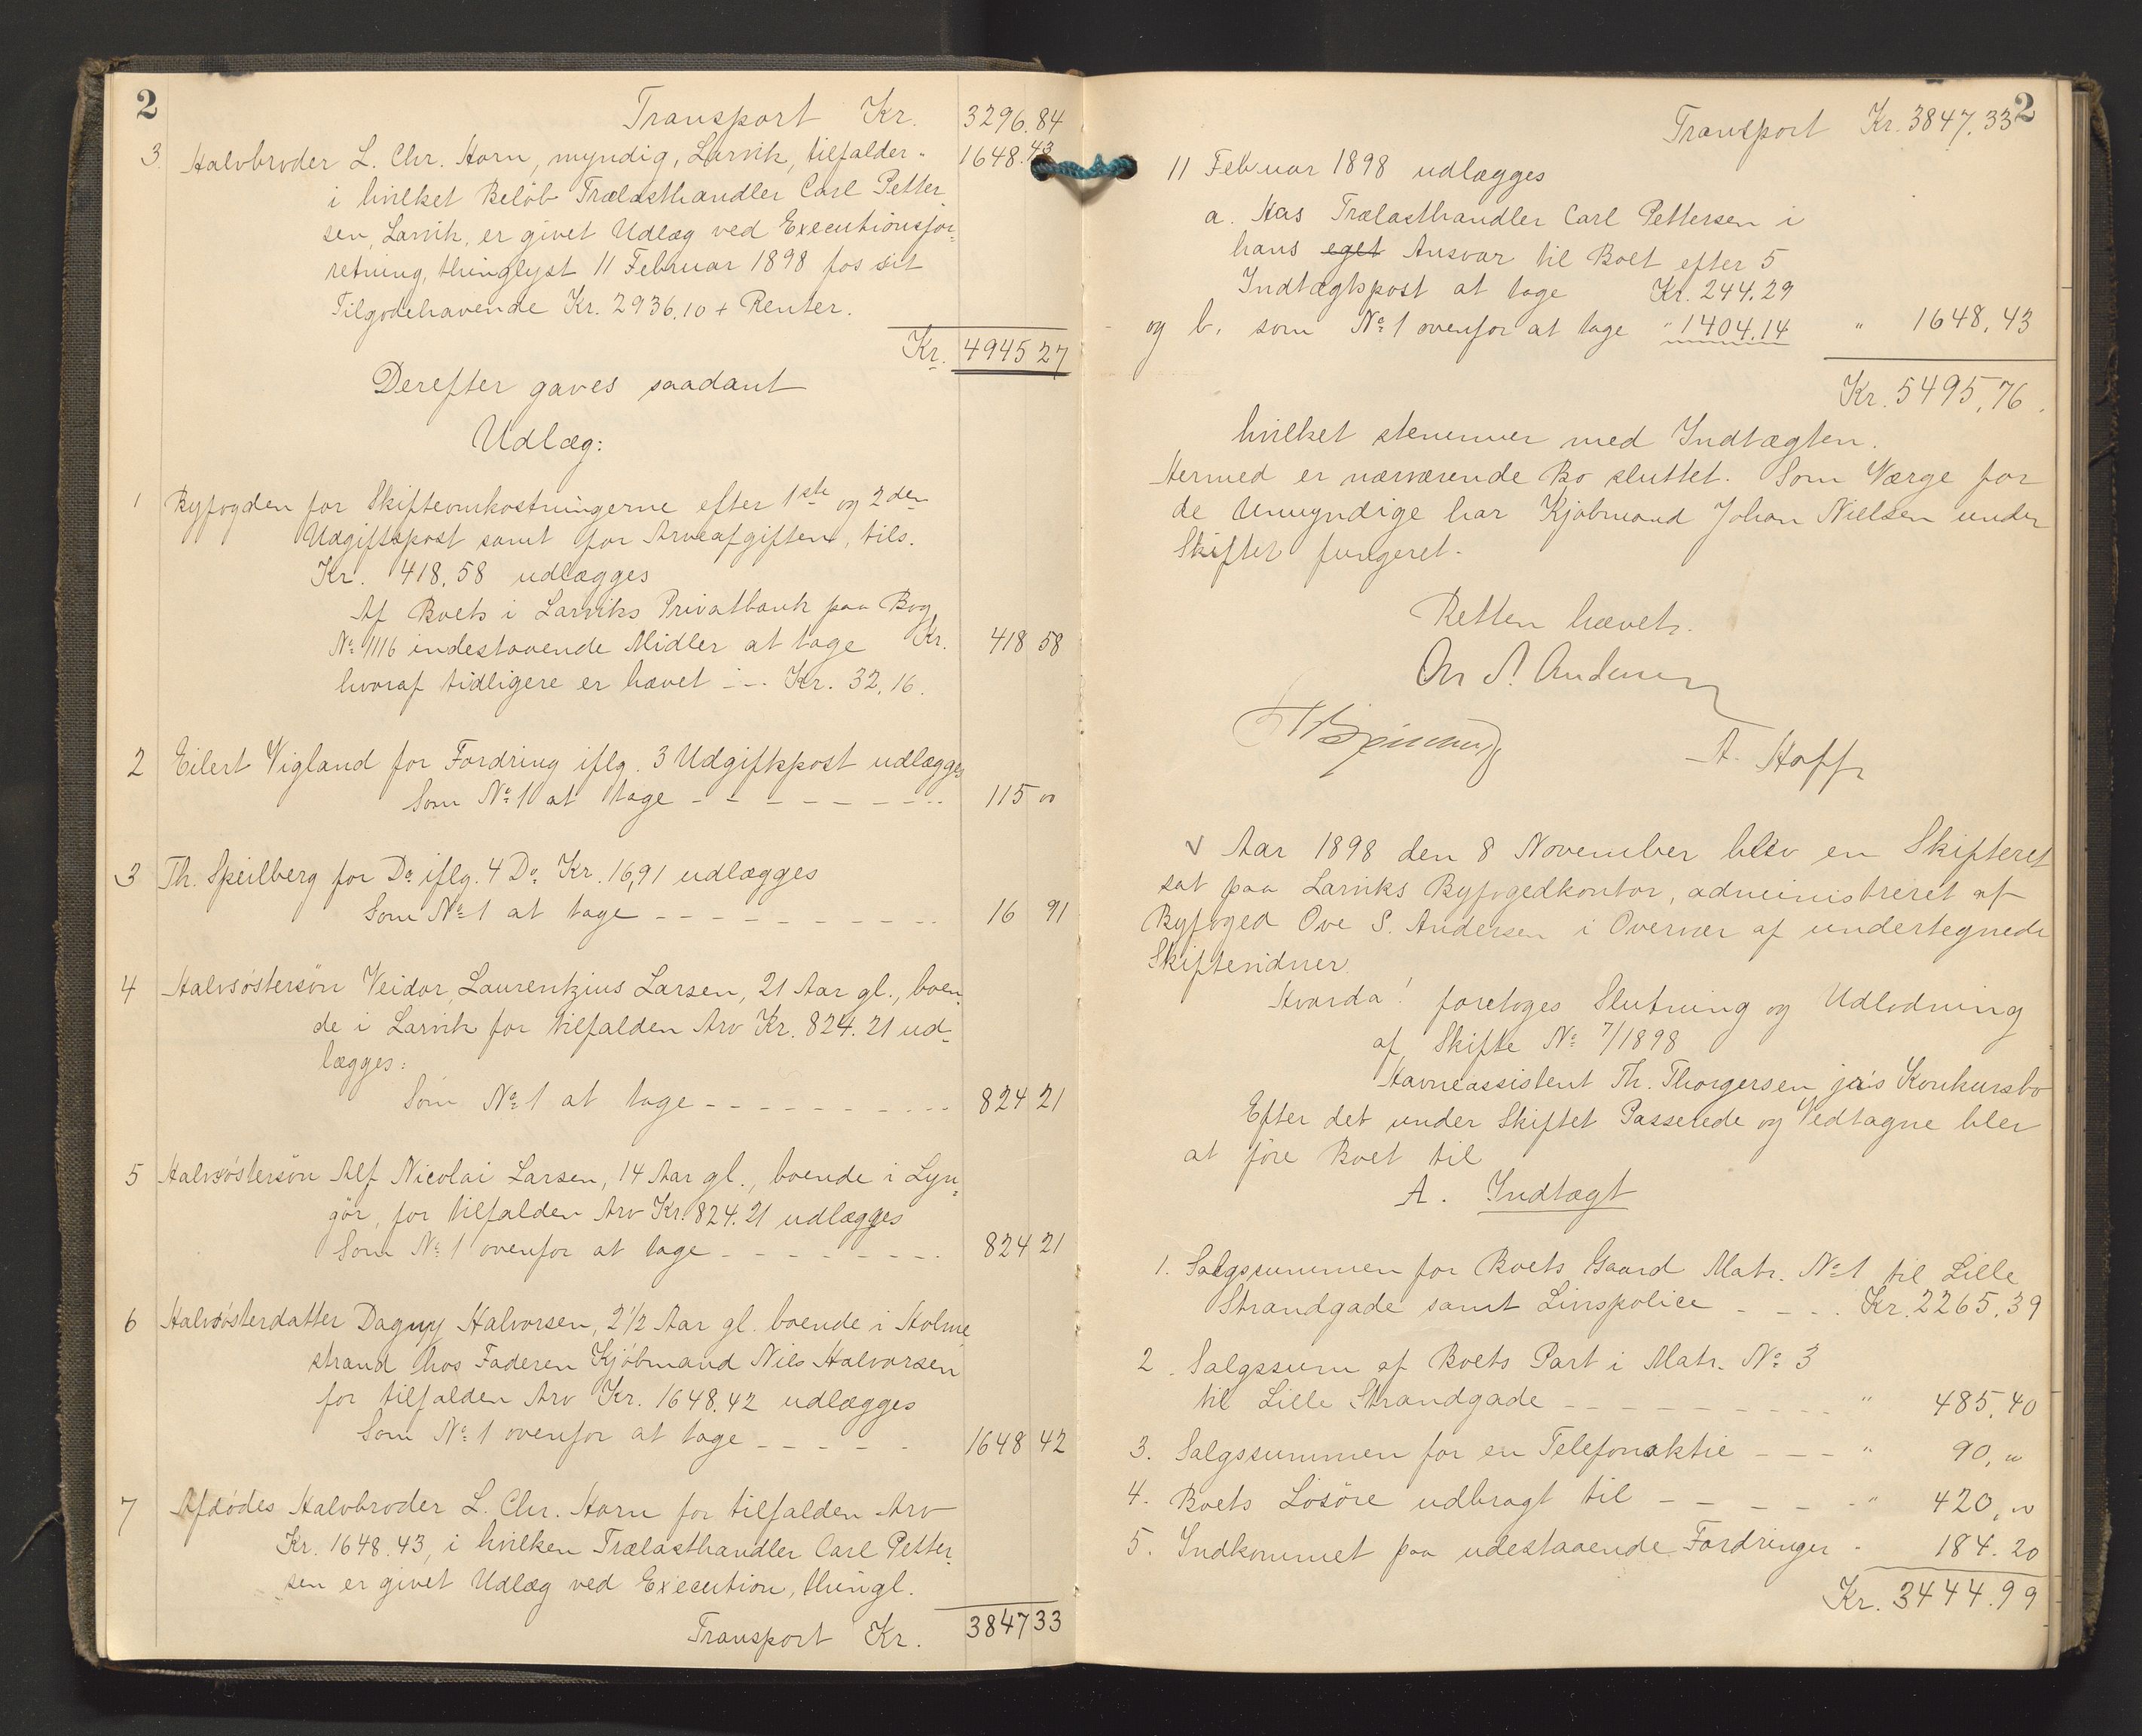 2
Transport Kr. 3296.84
3. Halvbroder L. Chr. Horn, myndig, Larvik, tilfalder " 1648.43
i hvilket Beløb Trælasthandler Carl Petter-
sen, Larvik, er givet Udlæg ved Executionsfor-
retning, thinglyst 11 Februar 1898 for sit
Tilgodehavende Kr. 2936.10 + Renter.
Kr. 4945 27
Derefter gaves saadant
Udlæg:
1 Byfogden for Skifteomkostningerne efter 1ste og 2den
Udgiftspost samt for Arveafgiften, tils.
Kr. 418.58 udlægges
Af Boets i Larviks Privatbank paa Bog
No 1116 indestaaende Midler at tage Kr. 418 58
hvoraf tidligere er hævet - - Kr. 32.16.
2 Eilert Vigland for Fordring iflg. 3 Udgiftspost udlægges
Som No 1 at tage - - - - - - - - 115 00
3 Th. Speilberg for Do iflg. 4 Do Kr. 16,91 udlægges
Som No 1 at tage - - - - - - - - - - 16 91
4 Halvsøstersøn Veidar Laurentzius Larsen, 21 Aar gl., boen-
de i Larvik for tilfalden Arv Kr. 824.21 ud-
lægges:
Som No 1 at tage - - - - - - - - - 824 21
5 Halvsøstersøn Alf Nicolai Larsen, 14 Aar gl., boende i Lyn-
gør, for tilfalden Arv Kr. 824.21 udlægges
Som No 1 ovenfor at tage - - - - - - - - 824 21
6 Halvsøsterdatter Dagny Halvorsen, 2 1/2 Aar gl. boende i Holme
strand hos Faderen Kjøbmand Nils Halvorsen
for tilfalden Arv Kr. 1648.42 udlægges
Som No 1 ovenfor at tage - - - - - 1648 42
7 Afdødes Halvbroder L. Chr. Horn for tilfalden Arv
Kr. 1648.43, i hvilken Trælasthandler Carl Petter-
sen er givet Udlæg ved Execution, thingl.
Transport Kr. 3847 33
2
Transport Kr. 3847.33
11 Februar 1898 udlægges
a. Hos Trælasthandler Carl Pettersen i
hans eget Ansvar til Boet efter 5
Indtægtspost at tage Kr. 244.29
og b. som No 1 ovenfor at tage " 1404.14 " 1648,43
Kr. 5495,76.
hvilket stemmer med Indtægten.
Hermed er nærværende Bo sluttet. Som Værge for
de Umyndige har Kjøbmand Johan Nielsen under
Skiftet fungeret.
Retten hævet.
Ove S. Andersen
A. Hoff
v Aar 1898 den 8 November blev en Skifteret
sat paa Larviks Byfogedkontor, administreret af
Byfoged Ove S. Andersen i Overvær af undertegnede
Skiftevidner.
Hvorda! foretoges Slutning og Udlodning
af Skifte No 7/1898
Havneassistent Th. Thorgersen jr's Konkursbo
Efter det under Skiftet Passerede og Vedtagne bler
at føre Boet til
A. Indtægt
1. Salgssummen for Boets Gaard Matr. No 1 til Lille
Strandgade samt Livspolice - - - - Kr. 2265.39
2. Salgssum af Boets Part i Matr. No 3
til Lille Strandgade - - - - - - - - - - " 485.40
3. Salgssummen for en Telefonaktie - - - " 90, "
4. Boets Løsøre udbragt til - - - - - " 420, "
5. Indkommet paa udestaaende Fordringer - 184.20
Kr. 3444.99